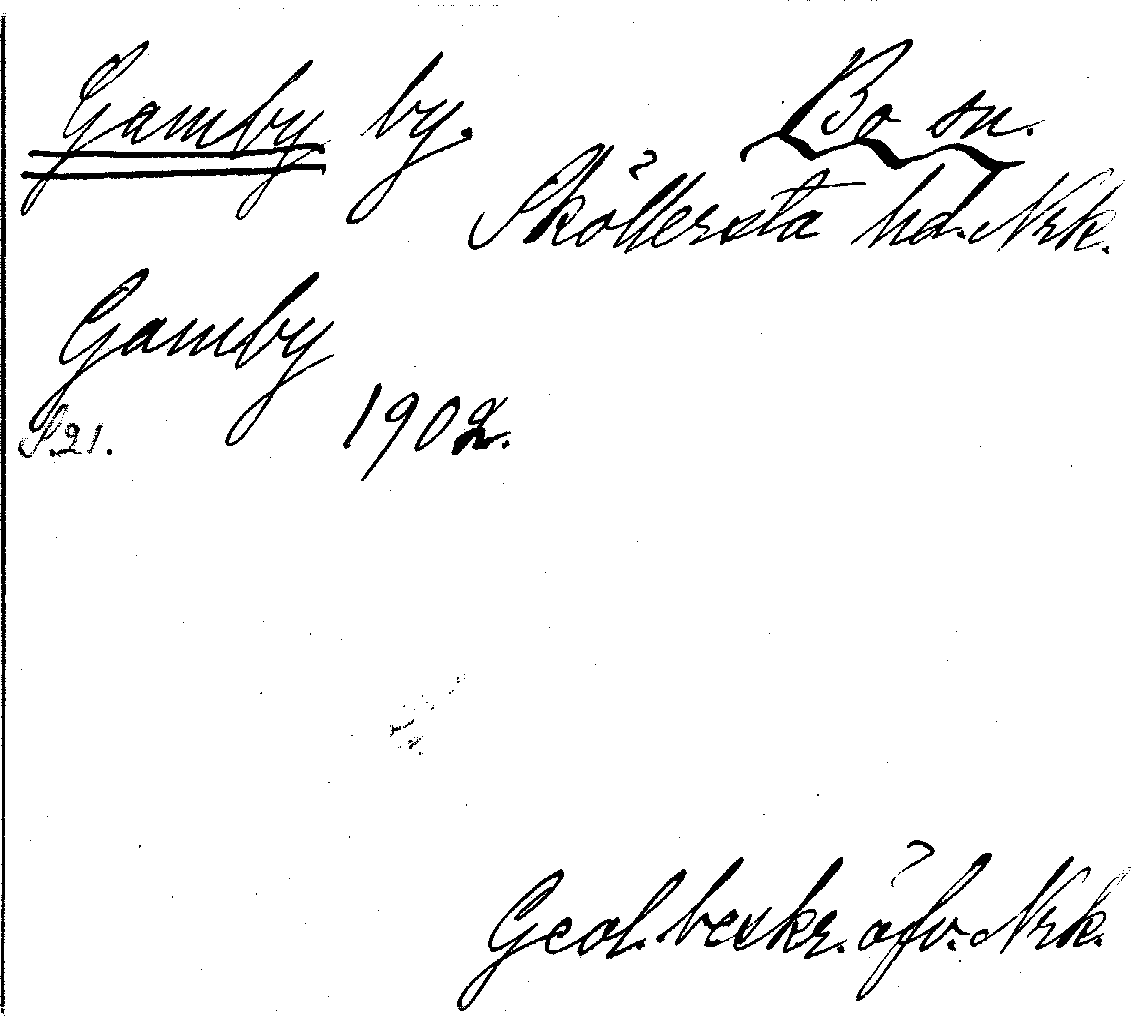 Gamby by. Bo sn.
Sköllersta hd. Nrk.
Gamby
S. 21. 1902.
Geol. beskr. öfv. Nrk.